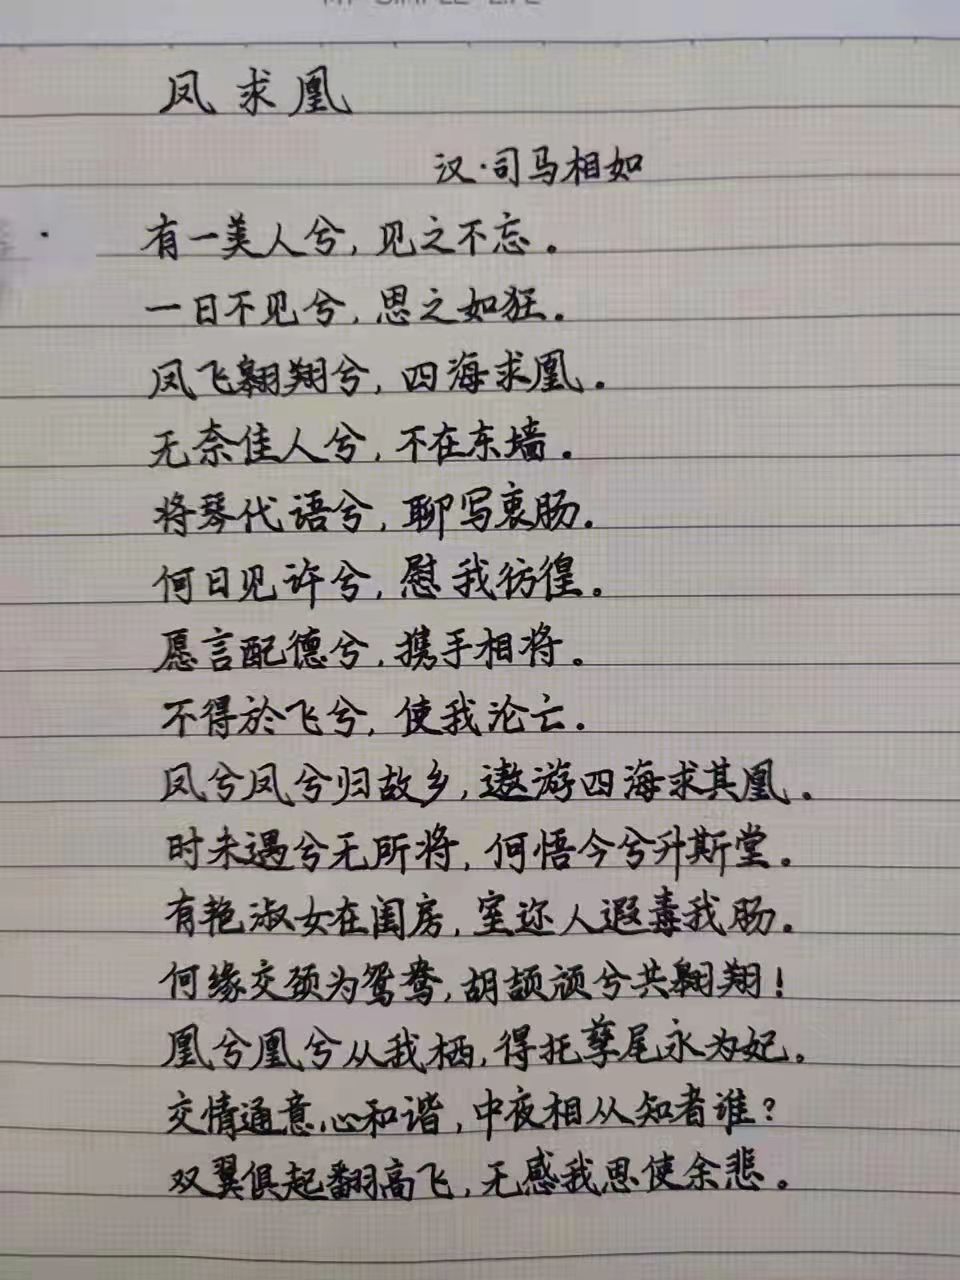 凤求凰
汉·司马相如
有一美人兮,见之不忘。
一日不见兮,思之如狂。
凤飞翱翔兮,四海求凰。
无奈佳人兮,不在东墙。
将琴代语兮,聊写衷肠。
何日见许兮,慰我彷徨。
愿言配德兮,携手相将。
不得於飞兮,使我沦亡。
凤兮凤兮归故乡,遨游四海求其凰。
时未遇兮无所将,何悟今兮升斯堂。
有艳淑女在闺房,室迩人遐毒我肠。
何缘交颈为鸳鸯,胡颉颃兮共翱翔!
凰兮凰兮从我栖,得托孳尾永为妃。
交情通意心和谐,中夜相从知者谁?
双翼俱起翻高飞,无感我思使余悲。